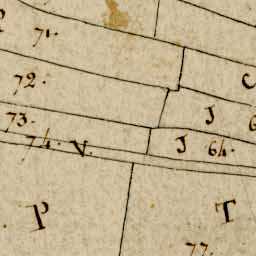 71.
72.
J
73.
74. V.
J 64.
P
T
77.